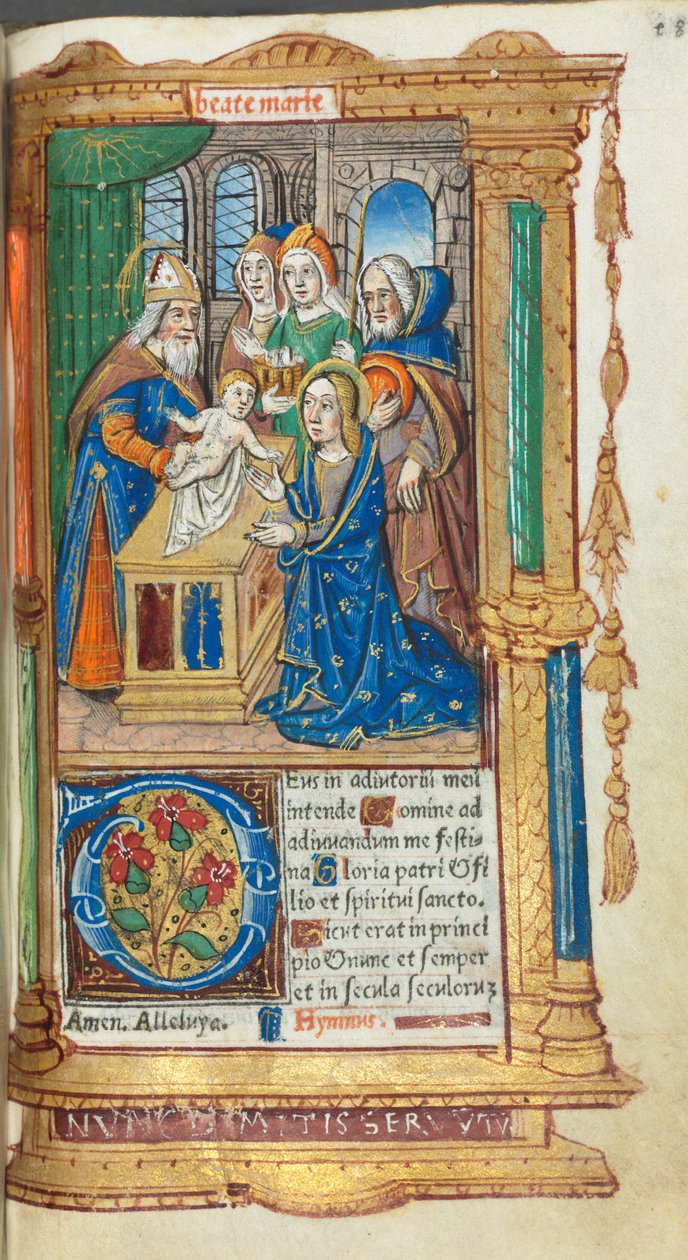 beate marie
Deus in adiutoriū meū
intende Domine ad
adiuvandum me festi-
na Gloria patri & fi
lio et spiritui sancto.
Sicut erat in princi
pio & nunc et semper
et in secula seculoruz
Amen. Alleluya. Hymnus.
NVNC DIMITIS SERVVTV